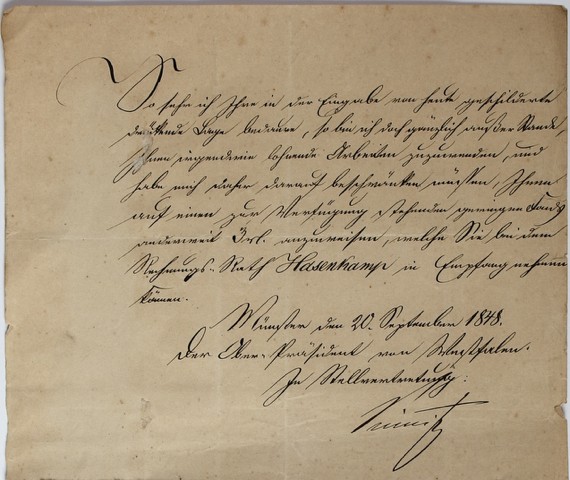 So sehr ich Ihre in der Eingabe von heute geschilderte
drückende Lage bedaure, so bin ich doch gänzlich außer Stande,
Ihnen irgendwie lohnende Arbeiten zuzuwenden, und
habe mich daher darauf beschränken müssen, Ihnen
auf einen zur Verfügung stehenden geringen Fonds
anderweit 3 rl. anzuweisen, welche Sie bei dem
Rechnungs-Rath Hasenkamp in Empfang nehmen
können.
Münster den 20. September 1848.
Der Ober-Präsident von Westfalen.
In Stellvertretung: